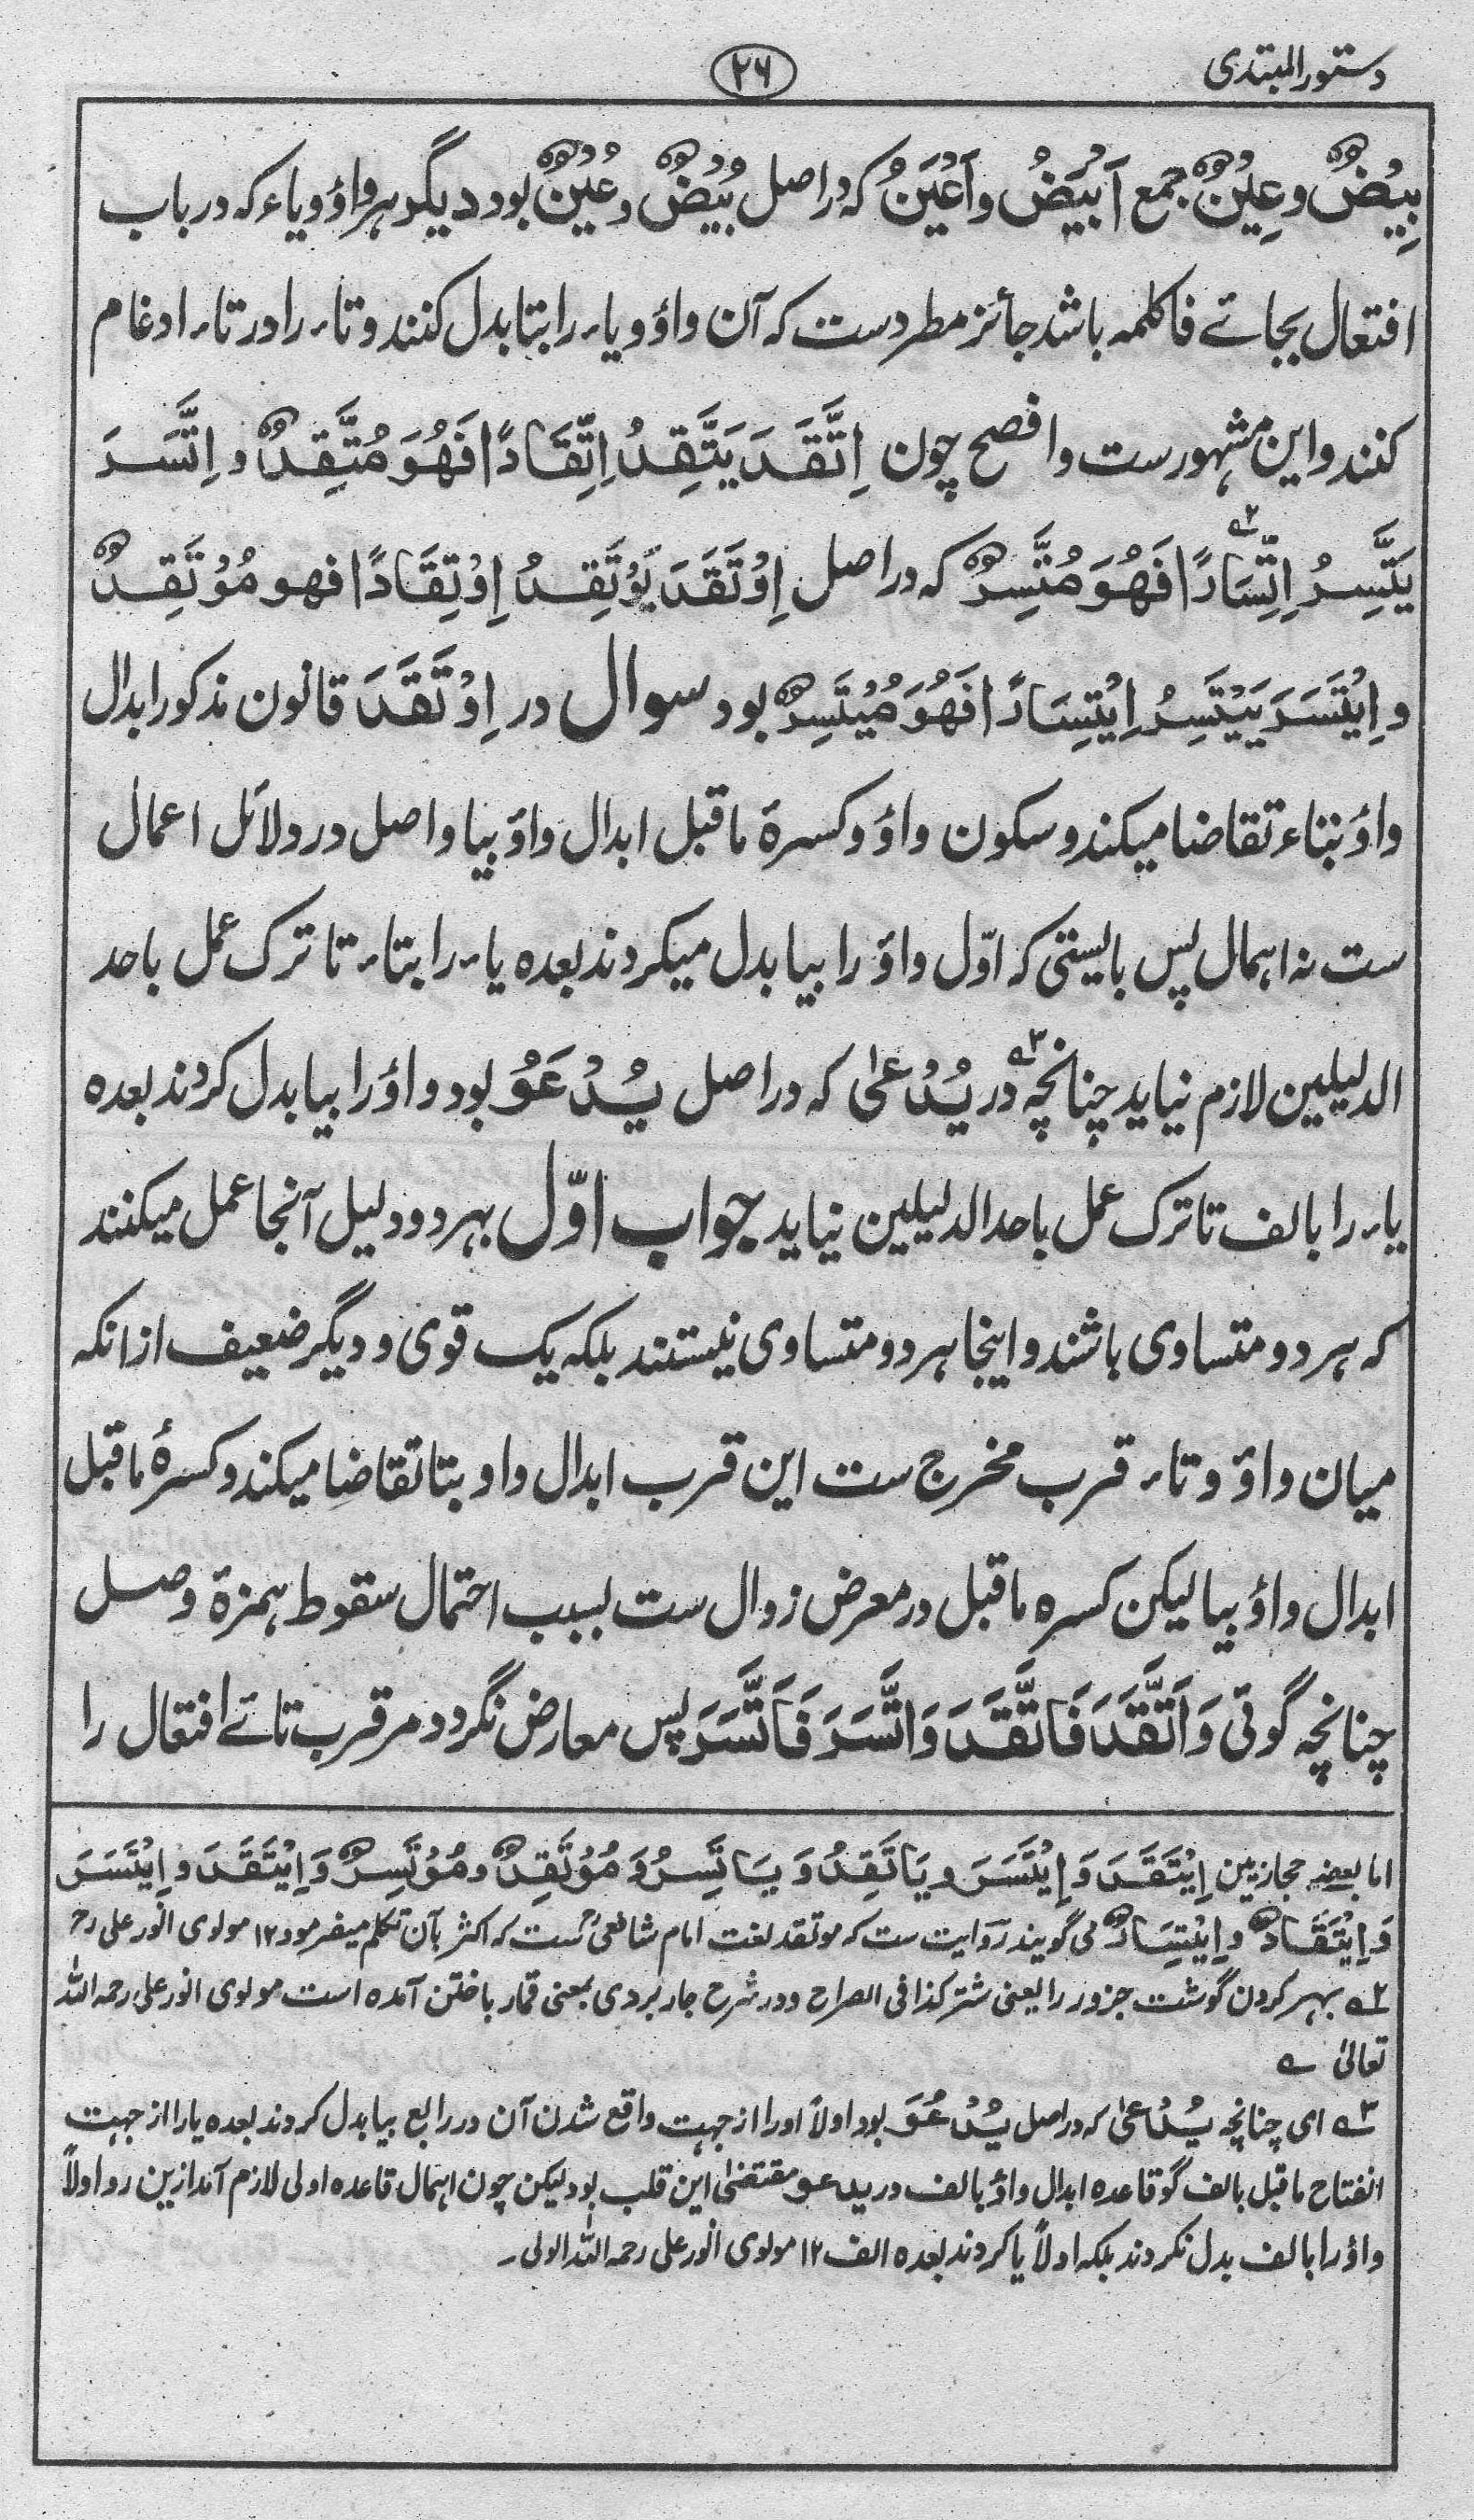 دستور المبتدی
۲۶
بِیْضٌ و عِیْنٌ جمع اَبْیَضُ و اَعْیَنُ که در اصل بُیْضٌ و عُیْنٌ بود دیگر هر واؤ و یاء که در باب
افتعال بجائے فا کلمه باشد جائز مطردست که آن واؤ و یاء را بتا بدل کنند و تاء را در تاء ادغام
کنند و این مشهورست و افصح چون اِتَّقَدَ یَتَّقِدُ اِتِّقَادًا فَهُوَ مُتَّقِدٌ و اِتَّسَرَ
یَتَّسِرُ اِتِّسَارًا۲ فَهُوَ مُتَّسِرٌ که در اصل اِوْتَقَدَ یَوْتَقِدُ اِوْتِقَادًا فهو مُوْتَقِدٌ
و اِیْتَسَرَ یَیْتَسِرُ اِیْتِسَارًا فَهُوَ مُیْتَسِرٌ بود سوال در اِوْتَقَدَ قانون مذکور ابدال
واؤ بتاء تقاضا میکند و سکون واؤ و کسرۀ ماقبل ابدال واؤ بیا و اصل در دلائل اعمال
ست نه اهمال پس بایستی که اوّل واؤ را بیا بدل میکردند بعده یاء را بتاء تا ترک عمل باحد
الدلیلین لازم نیاید چنانچه۳ در یُدْعیٰ که در اصل یُدْعَوُ بود واؤ را بیا بدل کردند بعده
یاء را بالف تا ترک عمل باحد الدلیلین نیاید جواب اوّل بهر دو دلیل آنجا عمل میکنند
که هر دو متساوی باشند و اینجا هر دو متساوی نیستند بلکه یک قوی و دیگر ضعیف از انکه
میان واؤ و تاء قرب مخرج ست این قرب ابدال واو بتا تقاضا میکند و کسرۀ ماقبل
ابدال واؤ بیا لیکن کسره ماقبل در معرض زوال ست بسبب احتمال سقوط همزۀ وصل
چنانچه گوئی وَاتَّقَدَ فَاتَّقَدَ وَاتَّسَرَ فَاتَّسَرَ پس معارض نگردد مر قرب تائے افتعال را
اما بعضے حجازیین اِیْتَقَدَ وَ اِیْتَسَرَ و یَاتَقِدُ وَ یَاتَسِرُ وَ مُوْتَقِدٌ و مُوْتَسِرٌ وَ اِیْتَقَدَ و اِیْتَسَرَ
وَ اِیْتِقَادٌ و اِیْتِسَارٌ می گویند روایت ست که موتقد لغت امام شافعیؒ ست که اکثر بآن تکلم میفرمود ۱۲ مولوی انور علی رح
۲ بهر کردن گوشت جزور را یعنی شتر کذا فی الصراح و در شرح جاربردی بمعنی قمار باختن آمده است مولوی انور علی رحمه الله
تعالیٰ
۳ ای چنانچه یُدْعیٰ که در اصل یُدْعَوُ بود اولاً او را از جهت واقع شدن آن در رابع بیا بدل کردند بعده یا را از جهت
انفتاح ماقبل بالف گو قاعده ابدال واؤ بالف در یدعو مقتضیٰ این قلب بود لیکن چون اهمال قاعده اولی لازم آمد ازین رو اولاً
واؤ را بالف بدل نکردند بلکه اولاً یا کردند بعده الف ۱۲ مولوی انور علی رحمه الله الولی۔